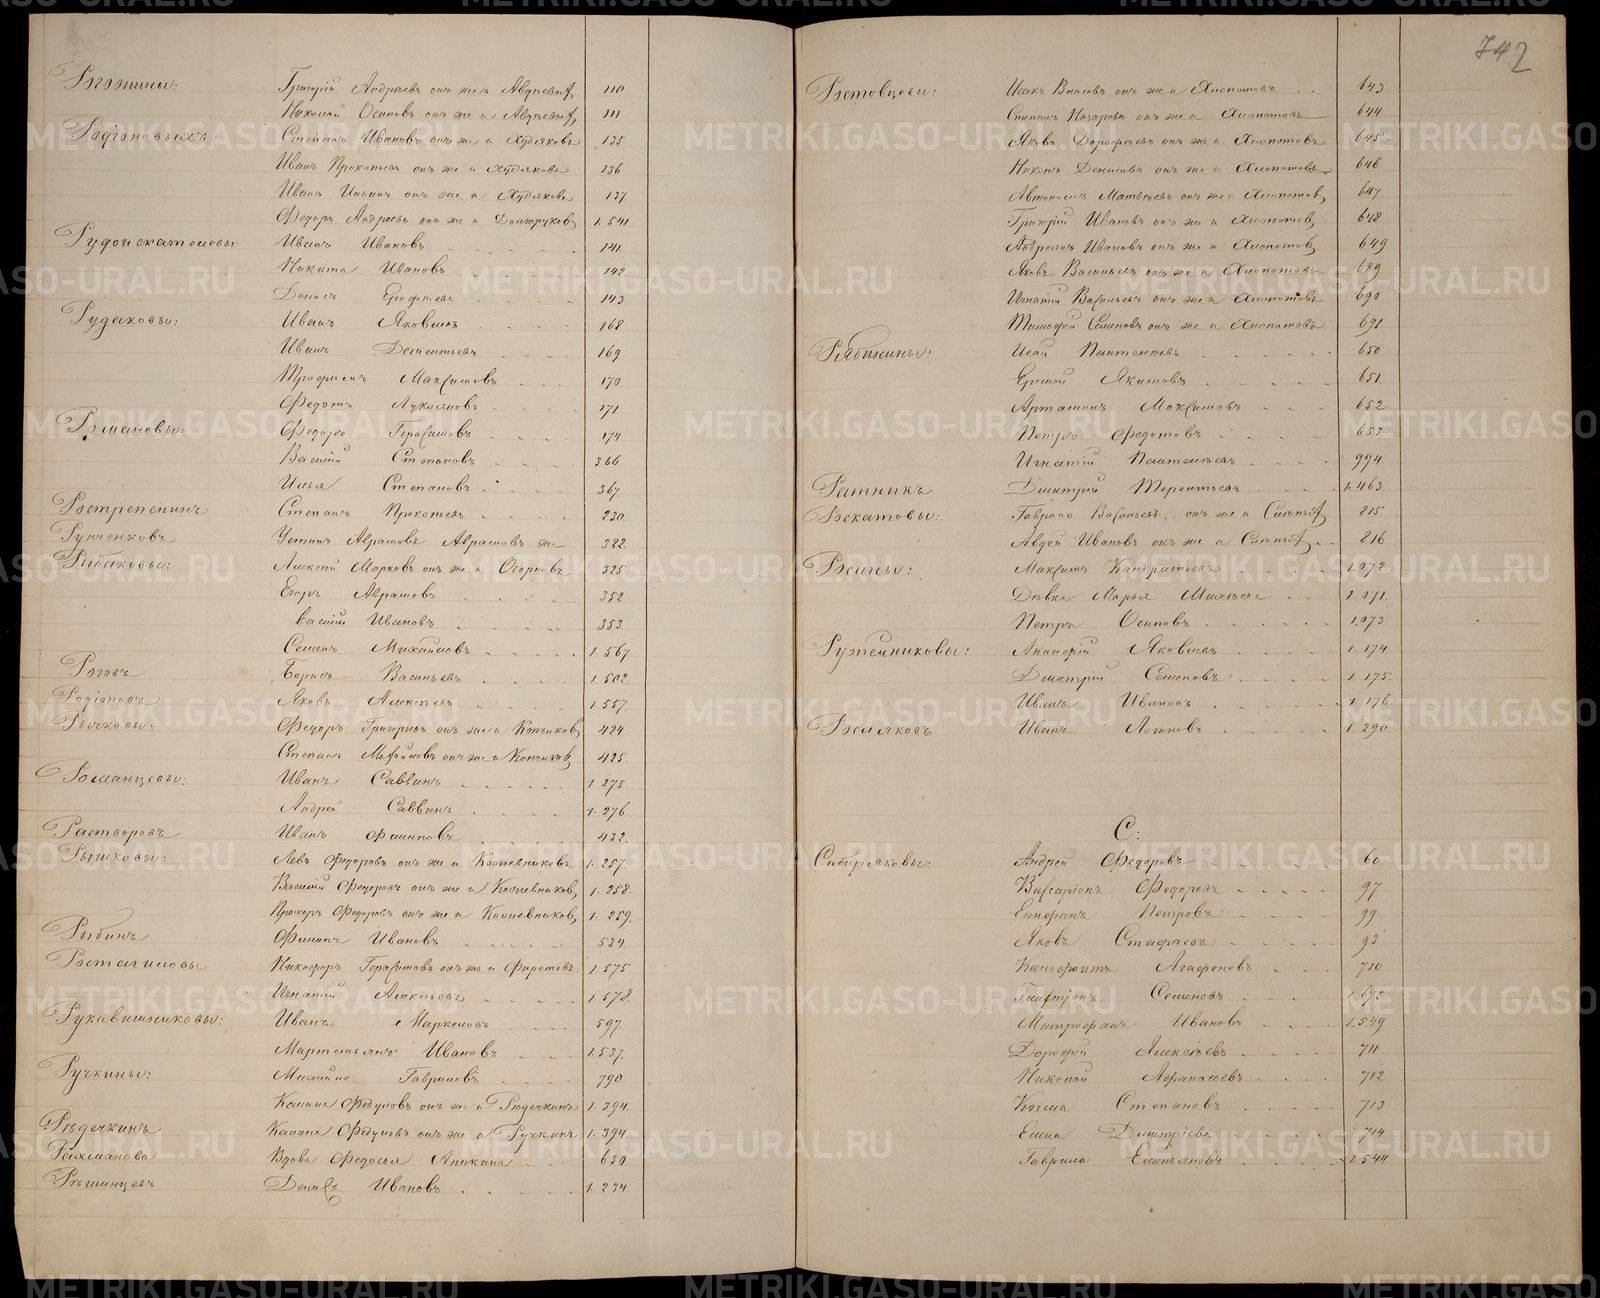 Рогожины: Григорій Андреевъ онъ же и Авдѣевыхъ 110
Николай Осиповъ онъ же и Авдѣевыхъ 111
Родіоновыхъ: Степанъ Ивановъ онъ же и Худяковъ 135
Иванъ Прокопьевъ онъ же и Худяковъ 136
Иванъ Ильинъ онъ же и Худяковъ 137
Федоръ Андреевъ онъ же и Долгоруковъ 1.541
Рудоискателевы: Иванъ Ивановъ 141
Никита Ивановъ 142
Денисъ Ерофеевъ 143
Рудаковы: Иванъ Яковлевъ 168
Иванъ Дементьевъ 169
Трофимъ Максимовъ 170
Федотъ Лукояновъ 171
Романовы: Федоръ Герасимовъ 174
Василій Степановъ 366
Илья Степановъ 367
Степанъ Прокопьевъ 230
Рупченковъ Устинъ Аврамовъ Аврамовъ же 322
Рыбаковы: Алексѣй Марковъ онъ же и 325
Егоръ Аврамовъ 352
Василій Ивановъ 353
Семенъ Михайловъ 1.567
Роговъ Борисъ Васильевъ 1.502
Родіоновъ Яковъ Алексѣевъ 1.557
Рычковы: Федоръ Григорьевъ онъ же и Копчиковъ 424
Степанъ онъ же и Копчиковъ 425
Романцевы: Иванъ Саввинъ 1.275
Андрей Саввинъ 1.276
Растворовъ Иванъ Филиповъ 432
Рыжковы: Левъ Федоровъ онъ же и Кожевниковъ 1.257
Василій Федоровъ онъ же и Кожевниковъ 1.258
Прохоръ Федоровъ онъ же и Кожевниковъ 1.259
Рыбинъ Филипъ Ивановъ 534
Никифоръ Герасимовъ онъ же и 1.575
Игнатій Алексѣевъ 1.578
Рукавишниковы: Иванъ Маркеловъ 597
Мартемьянъ Ивановъ 1.537
Ручкины: Михайло Гавриловъ 790
Калина Федуловъ онъ же и Рѣдечкинъ 1.394
Рѣдечкинъ Калина Федуловъ онъ же и Ручкинъ 1.394
Рахманова Вдова Федосья Аникина 630
Денисъ Ивановъ 1.234
742
Ростовцевы: Исакъ Власовъ онъ же и Хлопотовъ 643
Степанъ Назаровъ онъ же и Хлопотовъ 644
Яковъ Дорофеевъ онъ же и Хлопотовъ 645
Никонъ Денисовъ онъ же и Хлопотовъ 646
Автономъ Матвѣевъ онъ же и Хлопотовъ 647
Григорій Ивановъ онъ же и Хлопотовъ 648
Андреянъ Ивановъ онъ же и Хлопотовъ 649
Яковъ Васильевъ онъ же и Хлопотовъ 689
Игнатій Васильевъ онъ же и Хлопотовъ 690
Тимофей Семеновъ онъ же и Хлопотовъ 691
Рябинины: Исай Пантелеевъ 650
Еремей Якимовъ 651
Артамонъ Максимовъ 652
Петръ Федотовъ 653
Игнатій Пантелѣевъ 994
Ратникъ Дмитрій Терентьевъ 1.463
Рокатовы: Гаврило Васильевъ онъ же и 815
Авдей Ивановъ онъ же и 816
Максимъ Кандратьевъ 1.072
Дѣвка Марья 1.071
Петръ Осиповъ 1.073
Ружейниковы: Яковлевъ 1.174
Дмитрій Семеновъ 1.175
Иванъ Ивановъ 1.176
Иванъ Логиновъ 1.290
С:
Сибиряковы: Андрей Федоровъ 60
Висаріонъ Федоровъ 97
Епифанъ Петровъ 99
Яковъ 93
Ксенофонтъ Агафоновъ 710
Семеновъ 1.673
Митрофанъ Ивановъ 1.549
Дорофей Алексѣевъ 711
Николай Афанасьевъ 712
Козма Степановъ 713
Елена Дмитріева 714
Гаврила Емельяновъ 1.544
METRIKI.GASO-URAL.RU